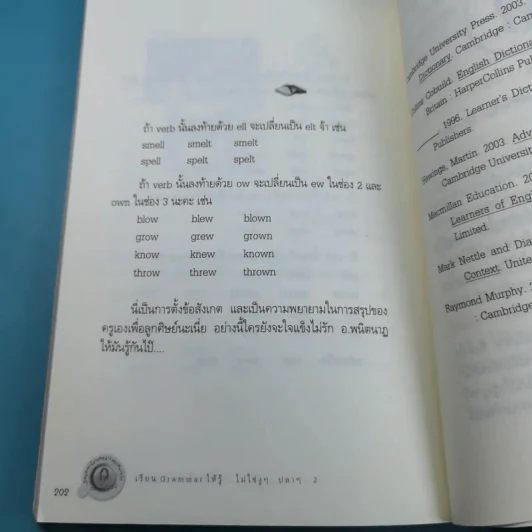 ถ้า verb นั้นลงท้ายด้วย ell จะเปลี่ยนเป็น elt จ้า เช่น
smell smelt smelt
spell spelt spelt
ถ้า verb นั้นลงท้ายด้วย ow จะเปลี่ยนเป็น ew ในช่อง 2 และ
own ในช่อง 3 นะคะ เช่น
blow blew blown
grow grew grown
know knew known
throw threw thrown
นี่เป็นการตั้งข้อสังเกต และเป็นความพยายามในการสรุปของ
ครูเองเพื่อลูกศิษย์นะเนี่ย อย่างนี้ใครยังจะใจแข็งไม่รัก อ.พนิตนาฏ
ให้มันรู้กันไป....
202
เรียน Grammar ให้รู้ ...ไม่ใช่งูๆ ...ปลาๆ 2
University Press. 2003.
Dictionary. Cambridge : Cam
Cobuild. English Dictionar
Britain : HarperCollins Pub
1996. Learner's Dict
Publishers.
Martin. 2003. Adv
Cambridge Universit
Macmillan Education. 20
Learners of Engl
Limited.
Mark Nettle and Dia
Context. Unite
Raymond Murphy. 2
: Cambridge